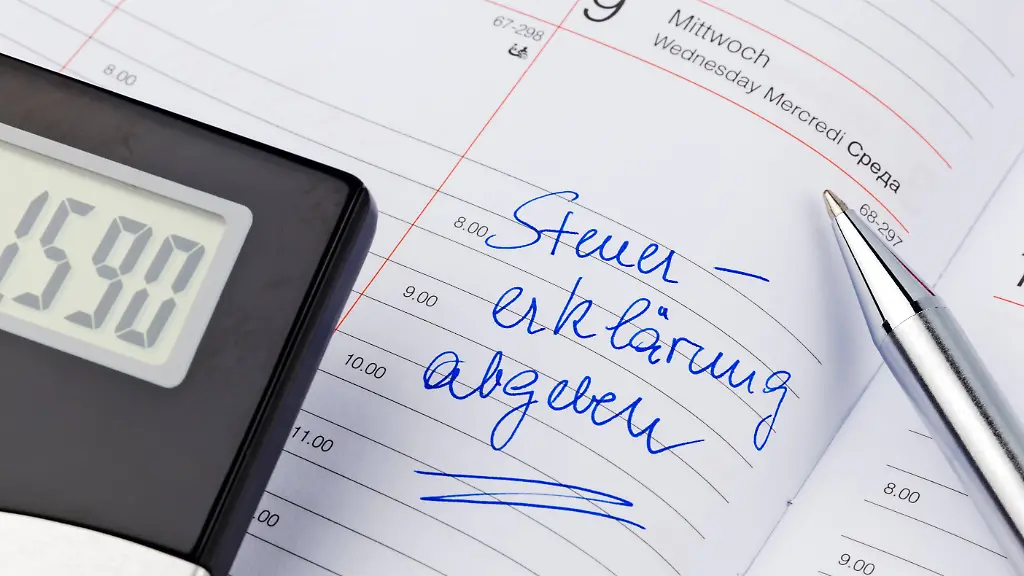 67-298
8.00
9
Mittwoch
Wednesday Mercredi Среда
68-297
8.00
9.00
10.00
11.00
.00
Steuer –
erklärung
abgeben
1590
8.00
9.00